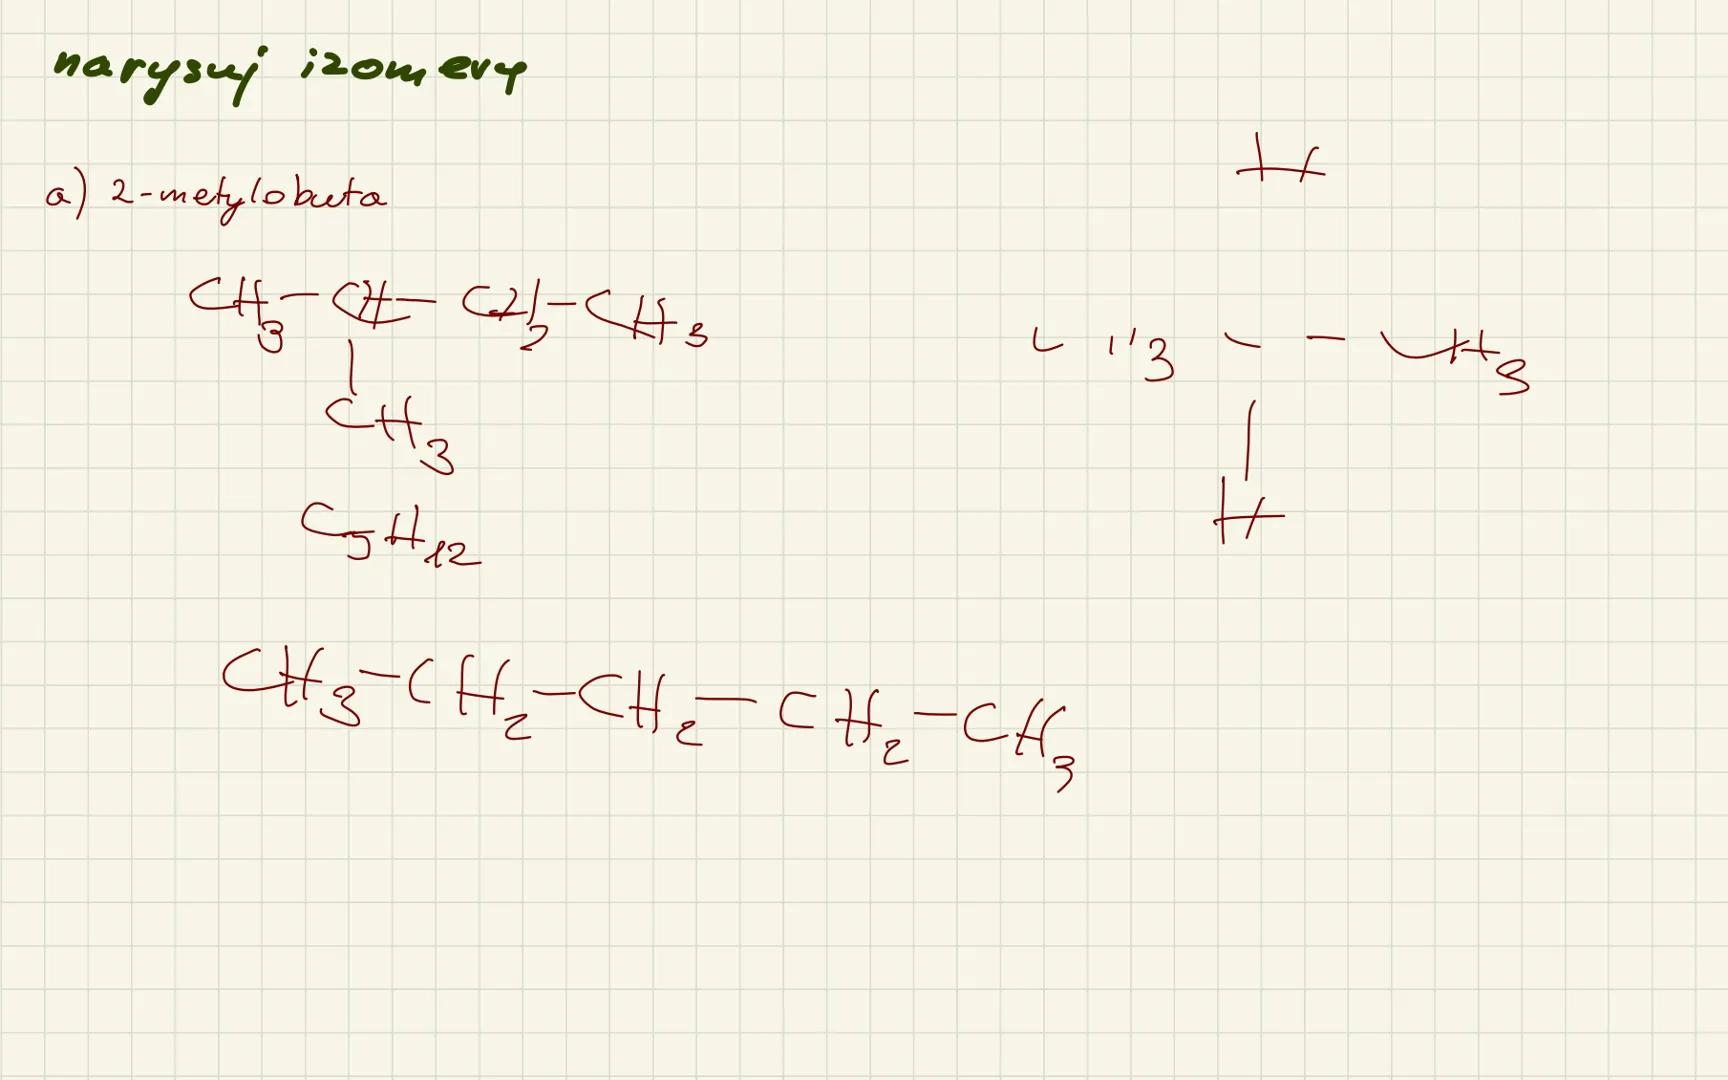 narysuj izomery
a) 2-metylobuta
CH3-CH-CH2-CH3
CH3
C5H12
CH3-CH2-CH2-CH2-CH3
H
H3
H